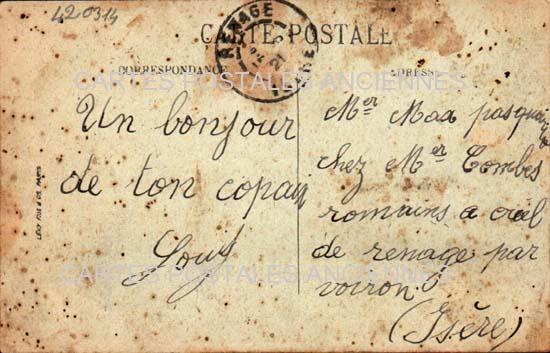 420314
CARTE POSTALE
RENAGE
21
ISÈRE
CORRESPONDANCE
ADRESSE
CARTES POSTALES ANCIENNES
Un bonjour
de ton copain
Louis
Mer Max
chez Mer Combes
romains a
de renage par
voiron
(Isère)
CARTES POSTALES ANCIENNES
LÉVY FILS & CIE, PARIS